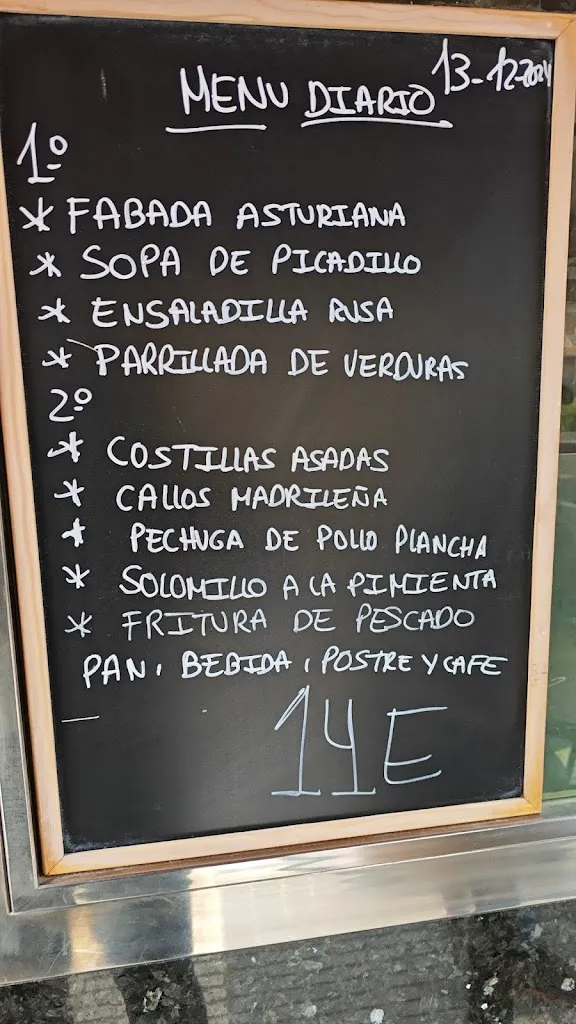 13-12-2024
MENU DIARIO
1º
* FABADA ASTURIANA
* SOPA DE PICADILLO
* ENSALADILLA RUSA
* PARRILLADA DE VERDURAS
2º
* COSTILLAS ASADAS
* CALLOS MADRILEÑA
* PECHUGA DE POLLO PLANCHA
* SOLOMILLO A LA PIMIENTA
* FRITURA DE PESCADO
PAN, BEBIDA, POSTRE Y CAFE
14E